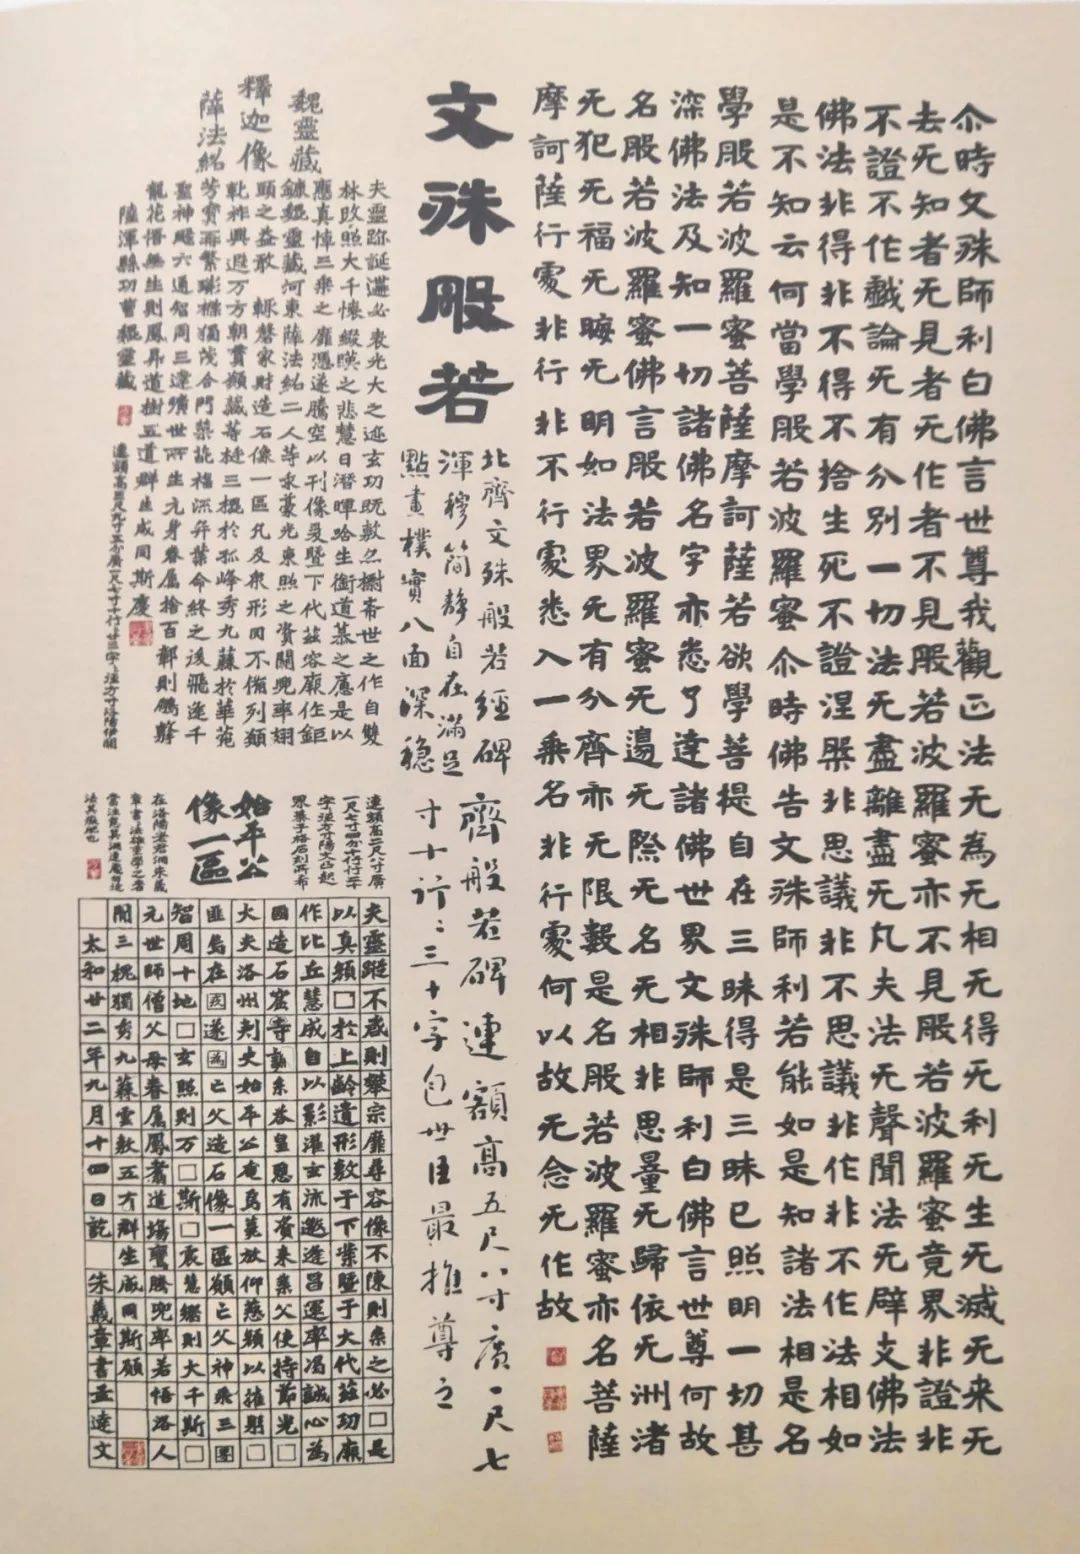 尒時文殊師利白佛言世尊我觀正法无為无相无得无利无生无滅无来无
去无知者无見者无作者不見般若波羅蜜亦不見般若波羅蜜竟界非證非
不證不作戲論无有分別一切法无盡離盡无凡夫法无聲聞法无辟支佛法
佛法非得非不得不捨生死不證涅槃非思議非不思議非作非不作法相如
是不知云何當學般若波羅蜜尒時佛告文殊師利若能如是知諸法相是名
學般若波羅蜜菩薩摩訶薩若欲學菩提自在三昧得是三昧已照明一切甚
深佛法及知一切諸佛名字亦悉了達諸佛世界文殊師利白佛言世尊何故
名般若波羅蜜佛言般若波羅蜜无邊无際无名无相非思量无歸依无洲渚
无犯无福无晦无明如法界无有分齊亦无限數是名般若波羅蜜亦名菩薩
摩訶薩行處非行非不行處悉入一乘名非行處何以故无念无作故
文殊般若
北齊文殊般若經碑
渾穆簡靜自在滿足
點畫樸實八面深穩
齊般若碑連額高五尺八寸廣一尺七
寸十行々三十字包世臣最推尊之
魏靈藏
釋迦像
薛法紹
夫靈跡誕遘必表光大之迹玄功既敷亦摽希世之作自雙
林改照大千懷綴暎之悲慧日潛暉唅生銜道慕之應是以
應真悼三乘之靡憑遂騰空以刊像爰暨下代茲容廠作鉅
鏕魏靈藏河東薛法紹二人等求豪光東照之資闕兜率翅
頭之益敢輒磬家財造石像一區凡及衆形罔不備列願
乾祚興延万方朝貫願藏等挺三槐於孤峰秀九蕀於華菀
芳實再繁條獨茂合門榮葩福流奕葉命終之後飛逢千
聖神颺六通智周三達曠世所生元身眷屬捨百鄣則鵬擊
龍花悟無生則鳳昇道樹五道群生咸同斯慶
陸渾縣功曹魏靈藏
連額高三尺九寸五分廣一尺七寸十行廿三字徑方寸洛陽伊闕
始平公
像一區
連額高二尺八寸廣
一尺七寸四分十行行二十
字徑方寸陽文凸起
界棊子格石刻所希
在洛陽老君洞朱義
章書
夫靈蹤不啟則攀宗靡尋容像不陳則崇之必□是
以真顏□於上齡遺形敷于下葉暨于大代茲功厥
作比丘慧成自以影濯玄流邀逢昌運率竭誠心為
國造石窟寺系荅皇恩有資来業父使持節光□
大夫洛州刾史始平公奄焉薨放仰慈顏以摧躬□
匪烏在遂為亡父造石像一區願亡父神飛三
智周十地□玄照則万□斯□震慧嚮則大千斯□
元世師僧父母眷屬鳳翥道塲鸞騰兜率若悟洛人
閒三槐獨秀九蕀雲敷五有群生咸同斯願
太和廿二年九月十四日訖 朱義章書孟達文